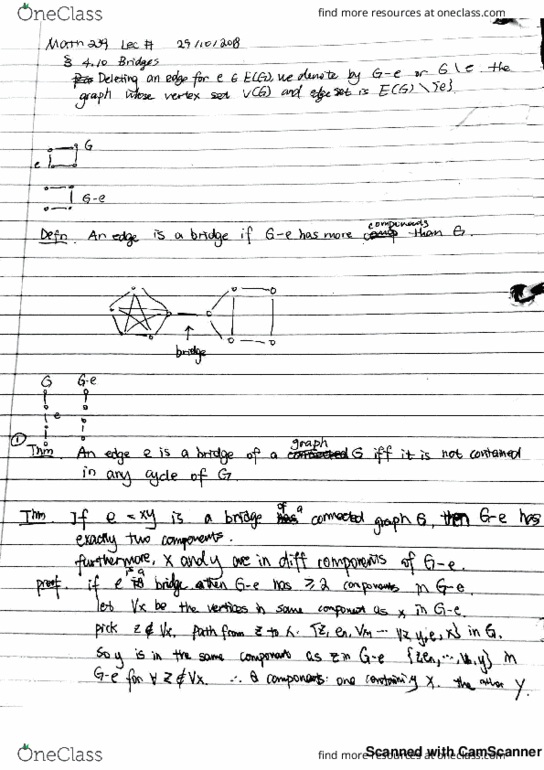 OneClass find more resources at oneclass.com
Math 239 Lec # 29/10/2018
§ 4.10 Bridges
Deleting an edge for e ∈ E(G), we denote by G-e or G\e the
graph whose vertex set V(G) and edge set is E(G) \ {e}
G
e
G-e
components
Defn. An edge is a bridge if G-e has more than G.
bridge
G G-e
e
① graph
Thm. An edge e is a bridge of a connected G iff it is not contained
in any cycle of G.
Thm. If e = xy is a bridge of a connected graph G, then G-e has
exactly two components.
furthermore, x and y are in diff components of G-e.
proof. if e is a bridge then G-e has ≥ 2 components in G-e.
let Vx be the vertices in same component as x in G-e.
pick z ∉ Vx. path from z to x. {z, en, Vm ... y, e, x} in G.
so y is in the same component as z in G-e in
G-e for ∀ z ∉ Vx. ∴ 2 components: one containing x. the other y.
OneClass find more resources at oneclass.com
Scanned with CamScanner